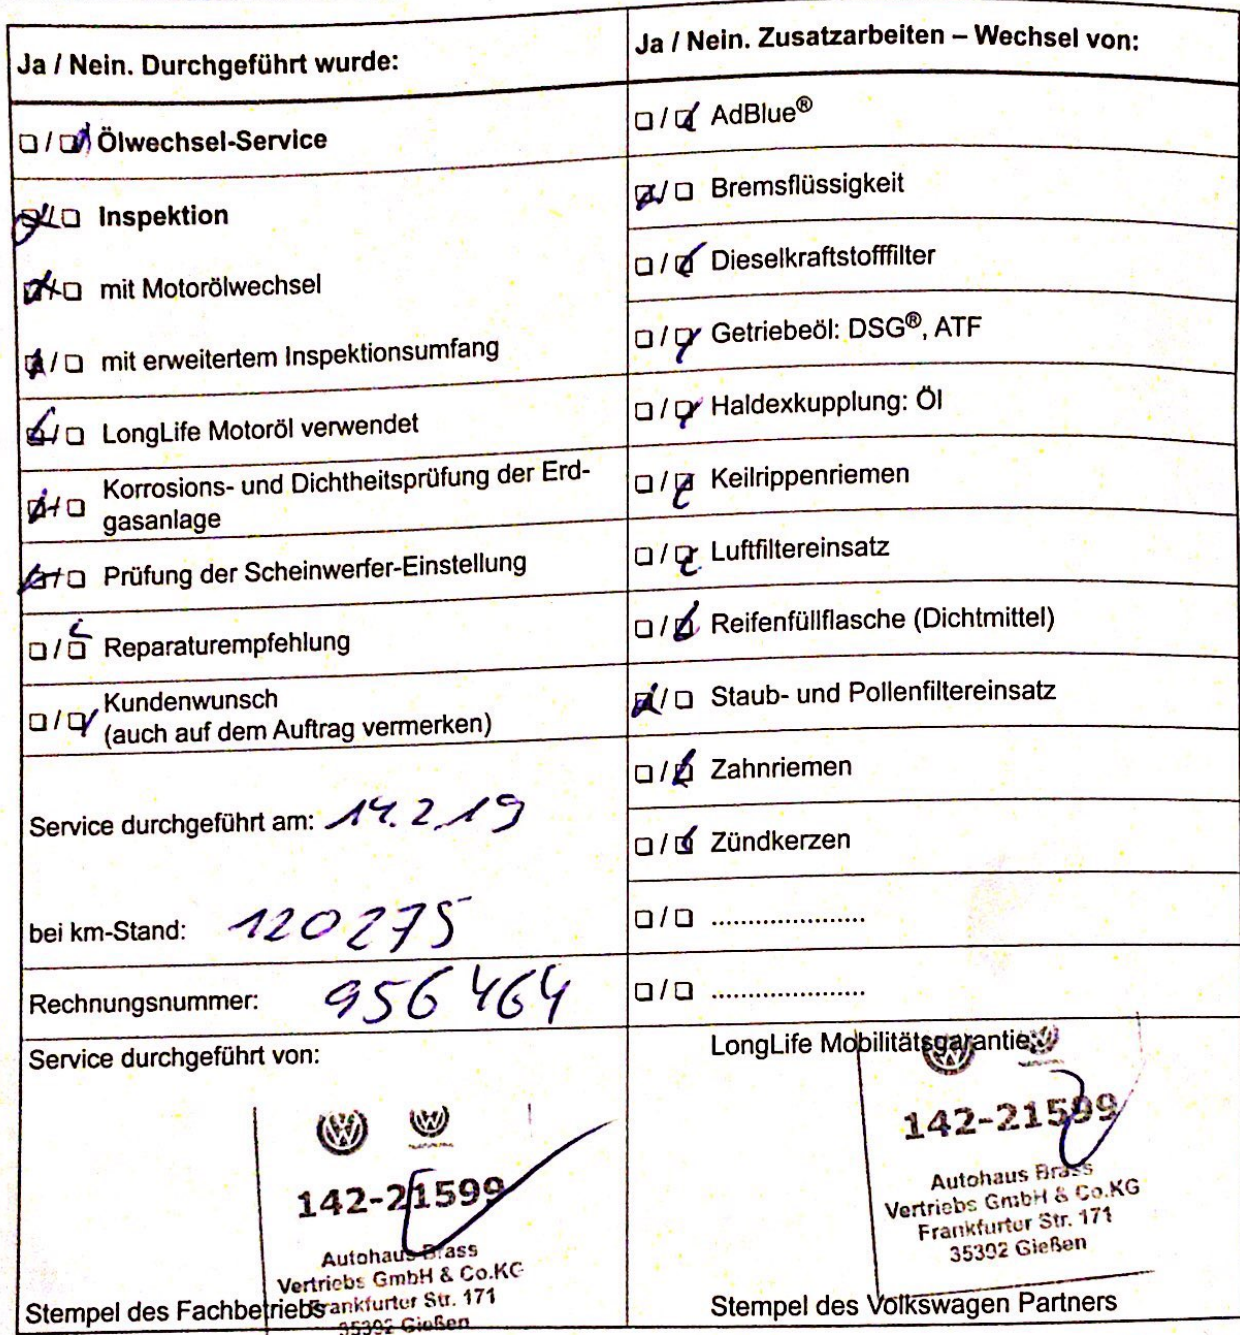 Ja / Nein. Durchgeführt wurde:
□ / □ Ölwechsel-Service
□ / □ Inspektion
□ / □ mit Motorölwechsel
□ / □ mit erweitertem Inspektionsumfang
□ / □ LongLife Motoröl verwendet
□ / □ Korrosions- und Dichtheitsprüfung der Erd-
gasanlage
□ / □ Prüfung der Scheinwerfer-Einstellung
□ / □ Reparaturempfehlung
□ / □ Kundenwunsch
(auch auf dem Auftrag vermerken)
Service durchgeführt am: 14.2.19
bei km-Stand: 120275
Rechnungsnummer: 956464
Service durchgeführt von:
142-21599
Autohaus Brass
Vertriebs GmbH & Co.KG
Frankfurter Str. 171
35392 Gießen
Stempel des Fachbetriebs
Ja / Nein. Zusatzarbeiten – Wechsel von:
□ / □ AdBlue®
□ / □ Bremsflüssigkeit
□ / □ Dieselkraftstofffilter
□ / □ Getriebeöl: DSG®, ATF
□ / □ Haldexkupplung: Öl
□ / □ Keilrippenriemen
□ / □ Luftfiltereinsatz
□ / □ Reifenfüllflasche (Dichtmittel)
□ / □ Staub- und Pollenfiltereinsatz
□ / □ Zahnriemen
□ / □ Zündkerzen
□ / □ .....................
□ / □ .....................
LongLife Mobilitätsgarantie:
142-21599
Autohaus Brass
Vertriebs GmbH & Co.KG
Frankfurter Str. 171
35392 Gießen
Stempel des Volkswagen Partners